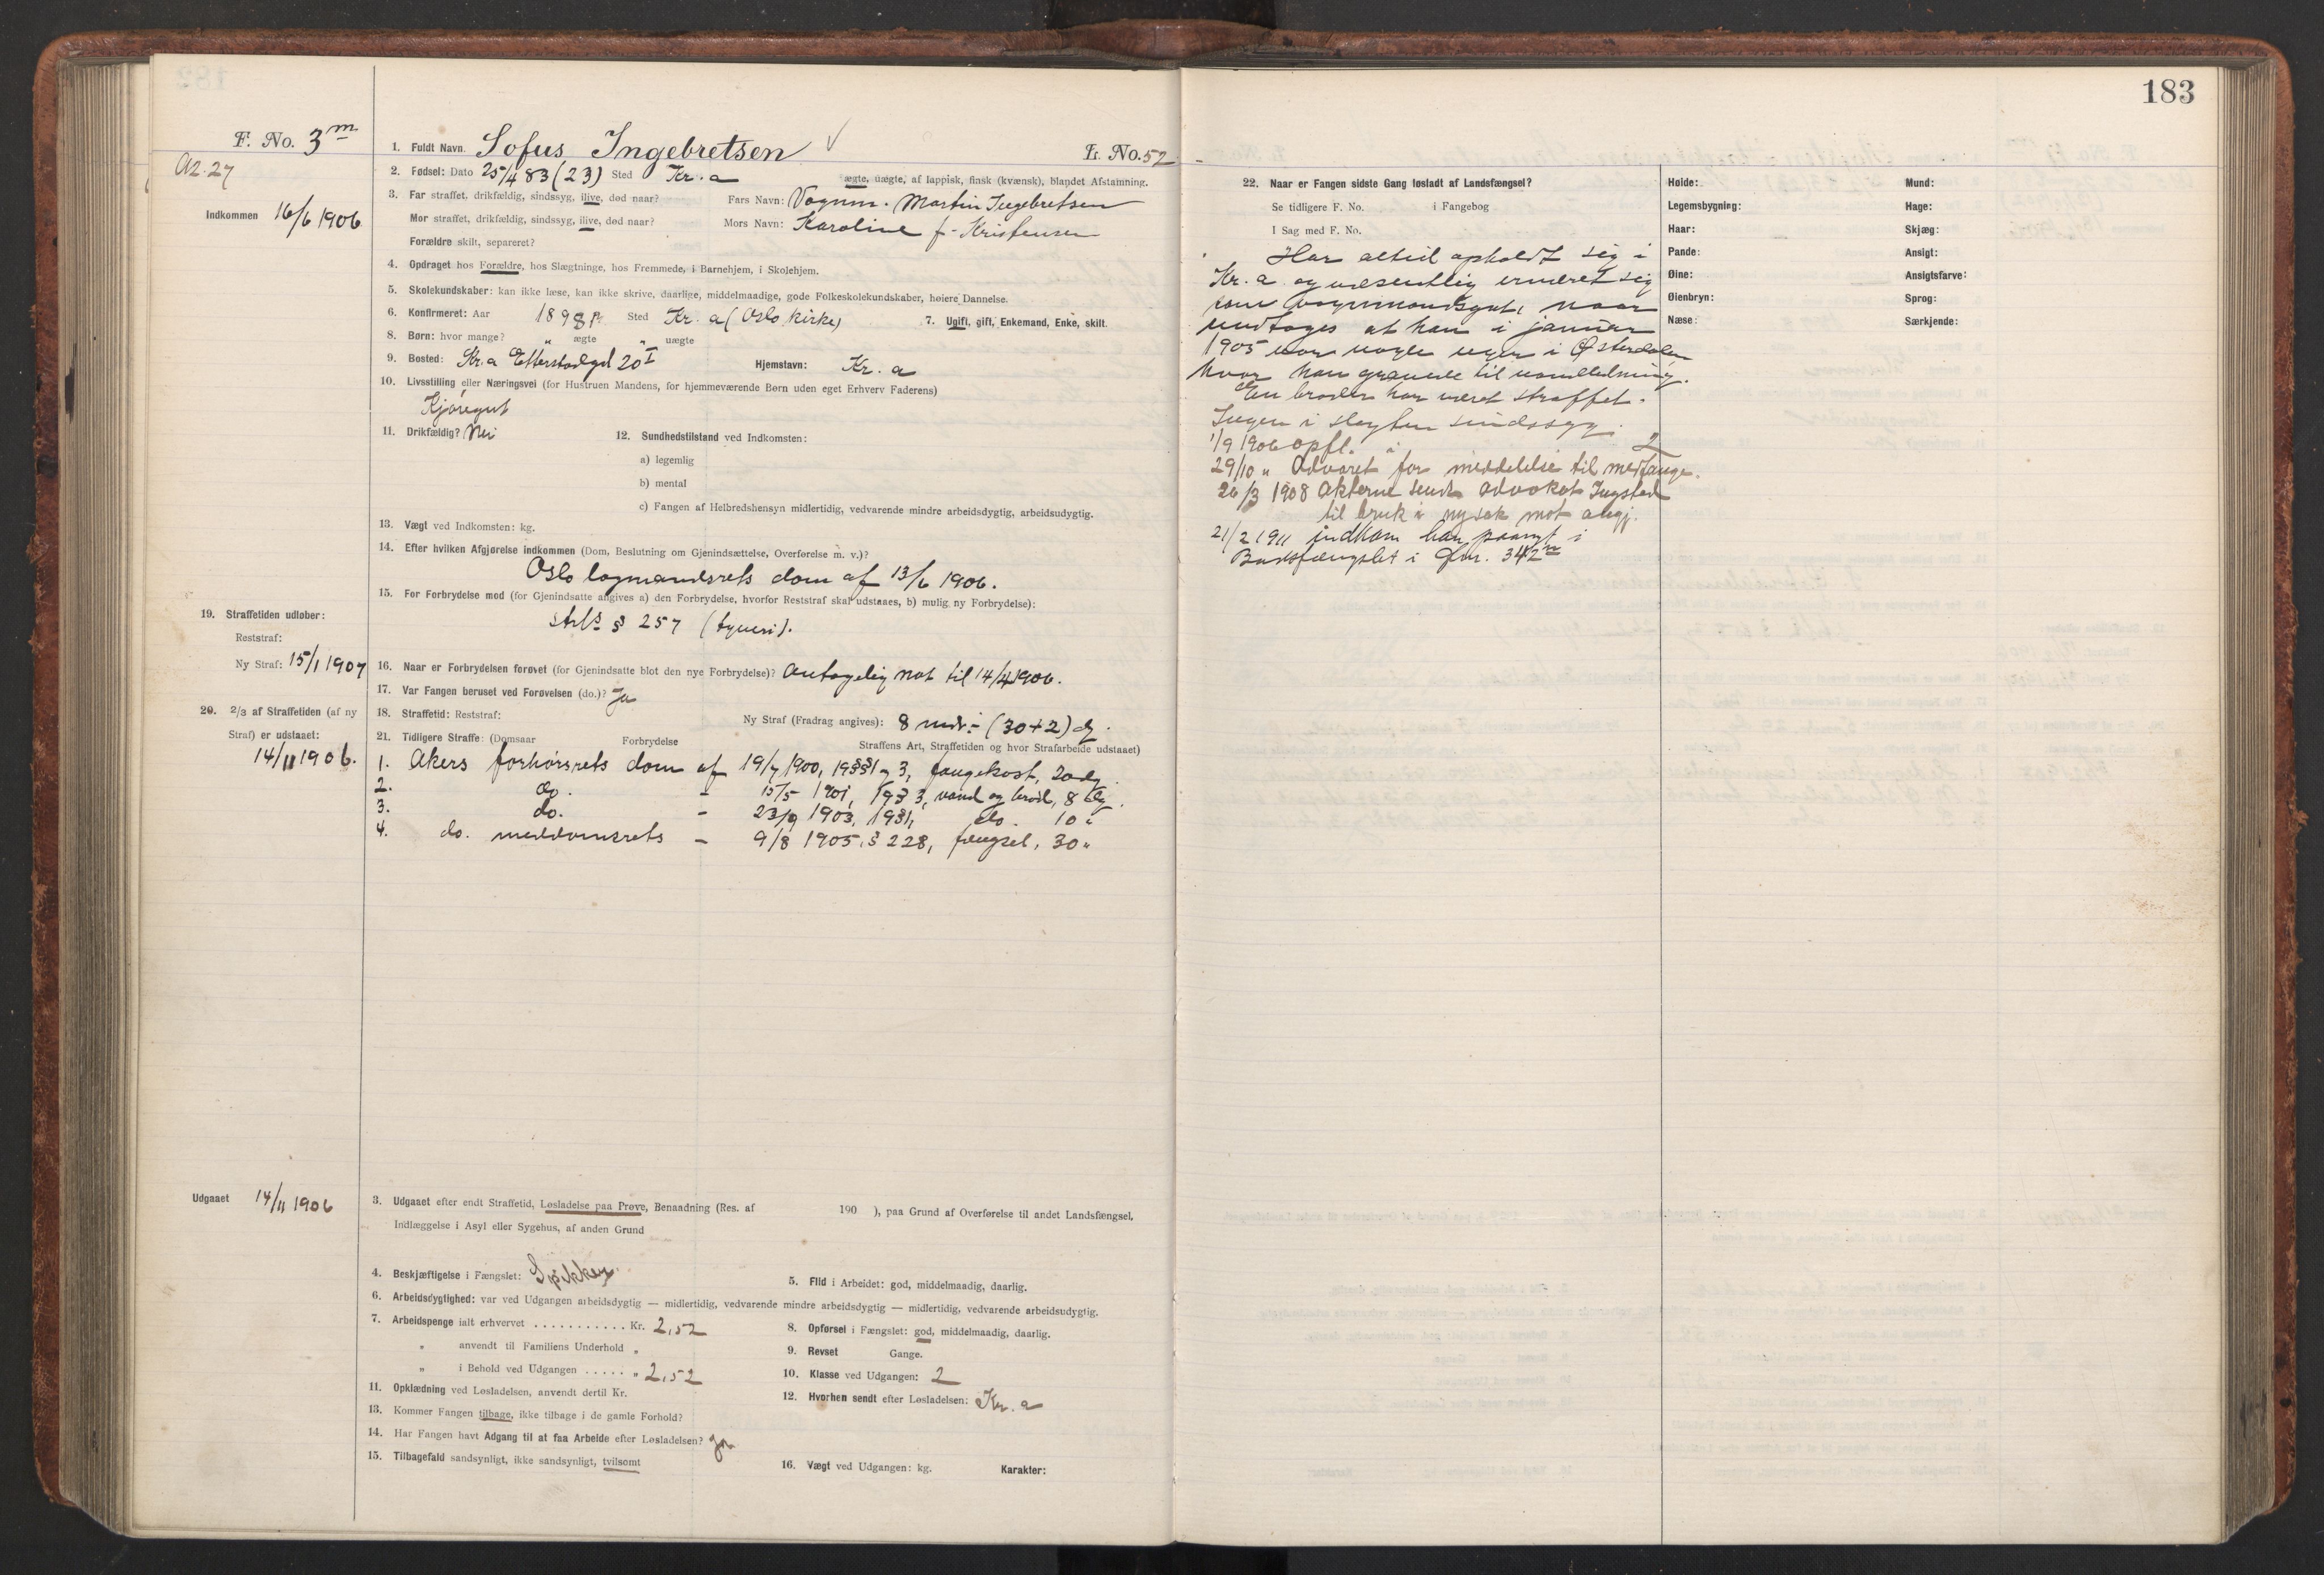 183
F. No. 3m
A2.27
Indkommen 16/6 1906
1. Fuldt Navn. Sofus Ingebretsen
L. No. 52
2. Fødsel: Dato 25/4 83 (23) Sted Kr.a ægte, uægte, af lappisk, finsk (kvænsk), blandet Afstamning.
3. Far straffet, drikfældig, sindssyg, ilive, død naar? Fars Navn: Vognm. Martin Ingebretsen
Mor straffet, drikfældig, sindssyg, ilive, død naar? Mors Navn: Karoline f. Kristensen
Forældre skilt, separeret?
4. Opdraget hos Forældre, hos Slægtninge, hos Fremmede, i Barnehjem, i Skolehjem.
5. Skolekundskaber: kan ikke læse, kan ikke skrive, daarlige, middelmaadige, gode Folkeskolekundskaber, høiere Dannelse.
6. Konfirmeret: Aar 1898 Sted Kr.a (Oslo kirke) 7. Ugift, gift, Enkemand, Enke, skilt.
8. Børn: hvor mange? " ægte " uægte
9. Bosted: Kr.a Etterstadgd 20 I Hjemstavn: Kr.a
10. Livsstilling eller Næringsvei (for Hustruen Mandens, for hjemmeværende Børn uden eget Erhverv Faderens)
Kjøregut
11. Drikfældig? Nei 12. Sundhedstilstand ved Indkomsten:
a) legemlig
b) mental
c) Fangen af Helbredshensyn midlertidig, vedvarende mindre arbeidsdygtig, arbeidsudygtig.
13. Vægt ved Indkomsten: kg.
14. Efter hvilken Afgjørelse indkommen (Dom, Beslutning om Gjenindsættelse, Overførelse m. v.)?
Oslo lagmandsrets dom af 13/6 1906.
15. For Forbrydelse mod (for Gjenindsatte angives a) den Forbrydelse, hvorfor Reststraf skal udstaaes, b) mulig ny Forbrydelse):
Strfl. § 257 (tyveri).
19. Straffetiden udløber:
Reststraf:
Ny Straf: 15/1 1907
16. Naar er Forbrydelsen forøvet (for Gjenindsatte blot den nye Forbrydelse)? Antagelig nat til 14/4 1906.
17. Var Fangen beruset ved Forøvelsen (do.)? Ja
18. Straffetid: Reststraf: Ny Straf (Fradrag angives): 8 mdr. ÷ (30+2) dg.
20. 2/3 af Straffetiden (af ny
Straf) er udstaaet:
14/11 1906.
21. Tidligere Straffe: (Domsaar Forbrydelse Straffens Art, Straffetiden og hvor Strafarbeide udstaaet)
1. Akers forhørsrets dom af 19/7 1900, 19 §§ 1 og 3, fangekost, 20 dg.
2. do. - 15/5 1901, 19 § 3, vand og brød, 8 dg.
3. do. - 23/9 1903, 19 § 1, do. 10 "
4. do. meddomsrets - 9/8 1905, § 228, fængsel, 30 "
Udgaaet 14/11 1906
3. Udgaaet efter endt Straffetid, Løsladelse paa Prøve, Benaadning (Res. af 190 ), paa Grund af Overførelse til andet Landsfængsel,
Indlæggelse i Asyl eller Sygehus, af anden Grund
4. Beskjæftigelse i Fængslet: Spikker 5. Flid i Arbeidet: god, middelmaadig, daarlig.
6. Arbeidsdygtighed: var ved Udgangen arbeidsdygtig — midlertidig, vedvarende mindre arbeidsdygtig — midlertidig, vedvarende arbeidsudygtig.
7. Arbeidspenge ialt erhvervet . . . . . . . . . . . Kr. 2,52 8. Opførsel i Fængslet: god, middelmaadig, daarlig.
" anvendt til Familiens Underhold " 9. Revset Gange.
" i Behold ved Udgangen . . . . . " 2,52 10. Klasse ved Udgangen: 2
11. Opklædning ved Løsladelsen, anvendt dertil Kr. 12. Hvorhen sendt efter Løsladelsen: Kr.a
13. Kommer Fangen tilbage, ikke tilbage i de gamle Forhold?
14. Har Fangen havt Adgang til at faa Arbeide efter Løsladelsen? Ja
15. Tilbagefald sandsynligt, ikke sandsynligt, tvilsomt 16. Vægt ved Udgangen: kg. Karakter:
22. Naar er Fangen sidste Gang løsladt af Landsfængsel?
Se tidligere F. No. i Fangebog
I Sag med F. No.
Har altid opholdt sig i
Kr.a og væsentlig ernæret sig
som vognmandsgut, naar
undtages at han i januar
1905 var nogle uger i Østerdalen
hvor han gravede til vandledning.
En broder har været straffet.
Ingen i slegten sindssyg.
1/9 1906 opfl. i 2
29/10 " Advaret for meddelelse til medfange.
26/3 1908 Akterne sendt advokat Ingstad
til bruk i ny sak mot angj.
21/2 1911 indkom han paanyt i
Bodsfængslet i fnr. 342m
Høide: Mund:
Legemsbygning: Hage:
Haar: Skjæg:
Pande: Ansigt:
Øine: Ansigtsfarve:
Øienbryn: Sprog:
Næse: Særkjende: